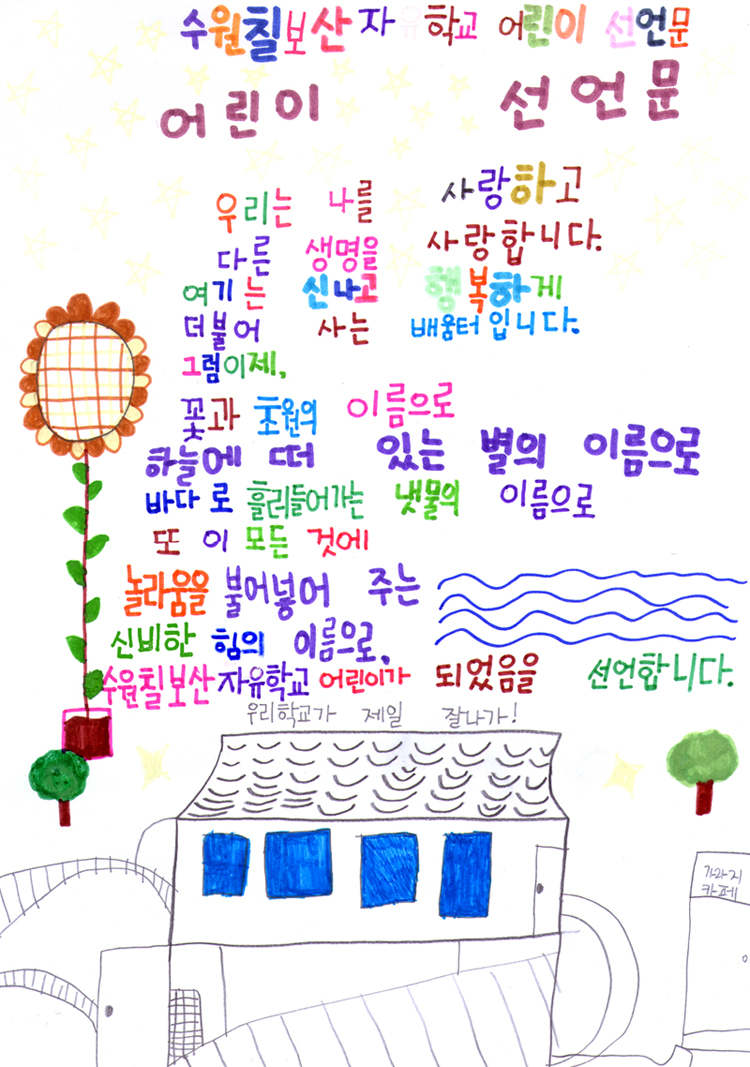 수원칠보산자유학교 어린이 선언문
어린이 선언문
우리는 나를 사랑하고
다른 생명을 사랑합니다.
여기는 신나고 행복하게
더불어 사는 배움터입니다.
그럼이제,
꽃과 초원의 이름으로
하늘에 떠 있는 별의 이름으로
바다로 흘러들어가는 냇물의 이름으로
또 이 모든 것에
놀라움을 불어넣어 주는
신비한 힘의 이름으로,
수원칠보산자유학교 어린이가 되었음을 선언합니다.
우리학교가 제일 잘나가!
가라지
카페